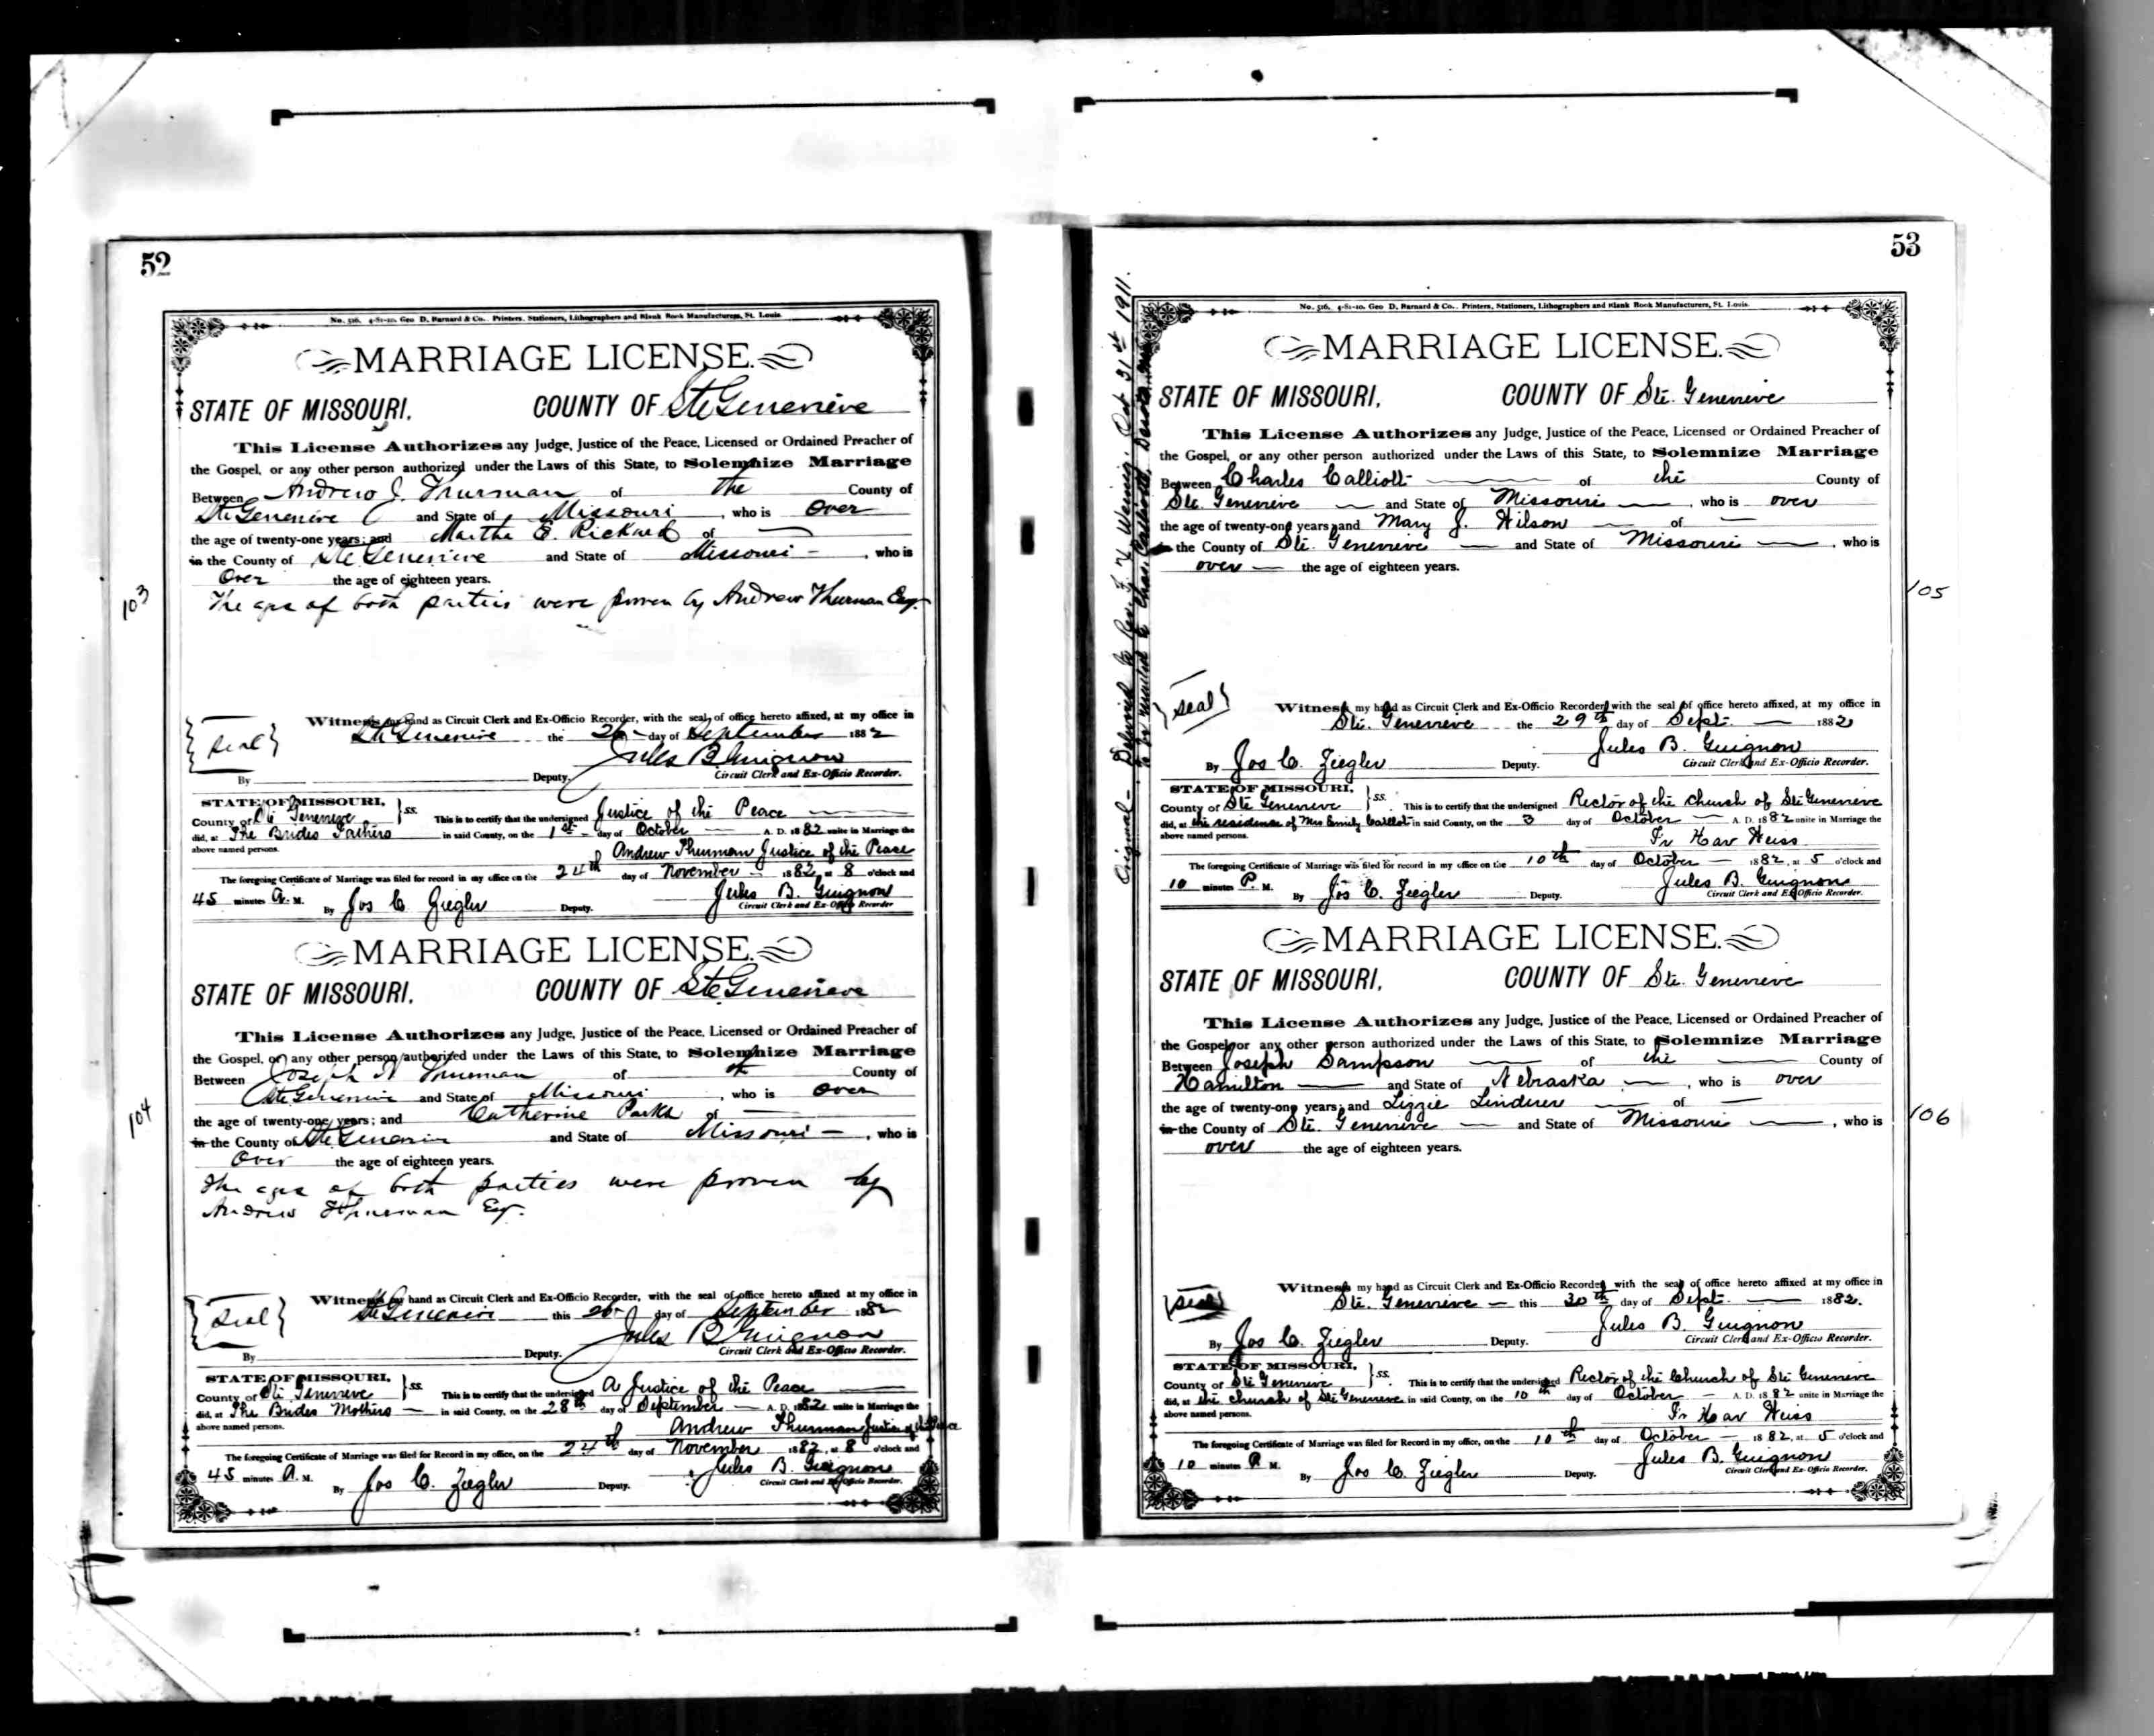 52
No. 516. 4-81-10. Geo D. Barnard & Co., Printers, Stationers, Lithographers and Blank Book Manufacturers, St. Louis.
MARRIAGE LICENSE.
STATE OF MISSOURI. COUNTY OF Ste Genevieve
This License Authorizes any Judge, Justice of the Peace, Licensed or Ordained Preacher of
the Gospel, or any other person authorized under the Laws of this State, to Solemnize Marriage
Between Andrew J. Thurman of the County of
Ste Genevieve and State of Missouri, who is Over
the age of twenty-one years; and Martha E. Rickard of
in the County of Ste Genevieve and State of Missouri, who is
Over the age of eighteen years.
103
The age of both parties were proven by Andrew Thurman Esq.
{Seal}
Witness my hand as Circuit Clerk and Ex-Officio Recorder, with the seal of office hereto affixed, at my office in
Ste Genevieve the 26 day of September 1882
Jules B. Guignon
By Deputy. Circuit Clerk and Ex-Officio Recorder.
STATE OF MISSOURI,
County of Ste Genevieve } ss. This is to certify that the undersigned Justice of the Peace
did, at The Brides Fathers in said County, on the 1st day of October A. D. 1882 unite in Marriage the
above named persons. Andrew Thurman Justice of the Peace
The foregoing Certificate of Marriage was filed for record in my office on the 24th day of November 1882, at 8 o'clock and
45 minutes A. M. By Jos C. Ziegler Deputy. Jules B. Guignon
Circuit Clerk and Ex-Officio Recorder
MARRIAGE LICENSE.
STATE OF MISSOURI. COUNTY OF Ste Genevieve
This License Authorizes any Judge, Justice of the Peace, Licensed or Ordained Preacher of
the Gospel, or any other person authorized under the Laws of this State, to Solemnize Marriage
Between Joseph N Thurman of County of
Ste Genevieve and State of Missouri, who is Over
the age of twenty-one years; and Catherine Parks of
104
in the County of Ste Genevieve and State of Missouri, who is
Over the age of eighteen years.
The age of both parties were proven by
Andrew Thurman Esq.
{Seal}
Witness my hand as Circuit Clerk and Ex-Officio Recorder, with the seal of office hereto affixed at my office in
Ste Genevieve this 26 day of September 1882
Jules B Guignon
By Deputy. Circuit Clerk and Ex-Officio Recorder.
STATE OF MISSOURI,
County of Ste Genevieve } ss. This is to certify that the undersigned A Justice of the Peace
did, at The Brides Mothers in said County, on the 28th day of September A. D. 1882 unite in Marriage the
above named persons. Andrew Thurman Justice of the Peace
The foregoing Certificate of Marriage was filed for Record in my office, on the 24th day of November 1882, at 8 o'clock and
45 minutes A. M. By Jos C. Ziegler Deputy. Jules B. Guignon
Circuit Clerk and Ex-Officio Recorder.
53
Original - Delivered to Rev. Oct 31st 1911.
to be mailed to Chas. Calliott,
No. 516. 4-81-10. Geo D. Barnard & Co., Printers, Stationers, Lithographers and Blank Book Manufacturers, St. Louis.
MARRIAGE LICENSE.
STATE OF MISSOURI. COUNTY OF Ste. Genevieve
This License Authorizes any Judge, Justice of the Peace, Licensed or Ordained Preacher of
the Gospel, or any other person authorized under the Laws of this State, to Solemnize Marriage
Between Charles Calliott of the County of
Ste. Genevieve and State of Missouri, who is over
the age of twenty-one years; and Mary J. Wilson of
in the County of Ste. Genevieve and State of Missouri, who is
over the age of eighteen years.
105
{Seal}
Witness my hand as Circuit Clerk and Ex-Officio Recorder, with the seal of office hereto affixed, at my office in
Ste. Genevieve the 29th day of Sept. 1882
Jules B. Guignon
By Jos C. Ziegler Deputy. Circuit Clerk and Ex-Officio Recorder.
STATE OF MISSOURI,
County of Ste Genevieve } ss. This is to certify that the undersigned Rector of the Church of Ste Genevieve
did, at the residence of Mrs Emily Calliot in said County, on the 3 day of October A. D. 1882 unite in Marriage the
above named persons. Fr Xav Weiss
The foregoing Certificate of Marriage was filed for record in my office on the 10th day of October 1882, at 5 o'clock and
10 minutes P. M. By Jos C. Ziegler Deputy. Jules B. Guignon
Circuit Clerk and Ex-Officio Recorder.
MARRIAGE LICENSE.
STATE OF MISSOURI. COUNTY OF Ste. Genevieve
This License Authorizes any Judge, Justice of the Peace, Licensed or Ordained Preacher of
the Gospel, or any other person authorized under the Laws of this State, to Solemnize Marriage
Between Joseph Sampson of the County of
Hamilton and State of Nebraska, who is over
the age of twenty-one years; and Lizzie Linderer of
in the County of Ste. Genevieve and State of Missouri, who is
106
over the age of eighteen years.
{Seal}
Witness my hand as Circuit Clerk and Ex-Officio Recorder, with the seal of office hereto affixed at my office in
Ste. Genevieve this 30th day of Sept. 1882.
Jules B. Guignon
By Jos C. Ziegler Deputy. Circuit Clerk and Ex-Officio Recorder.
STATE OF MISSOURI,
County of Ste Genevieve } ss. This is to certify that the undersigned Rector of the Church of Ste Genevieve
did, at the church of Ste Genevieve in said County, on the 10th day of October A. D. 1882 unite in Marriage the
above named persons. Fr Xav Weiss
The foregoing Certificate of Marriage was filed for Record in my office, on the 10th day of October 1882, at 5 o'clock and
10 minutes P. M. By Jos C. Ziegler Deputy. Jules B. Guignon
Circuit Clerk and Ex-Officio Recorder.